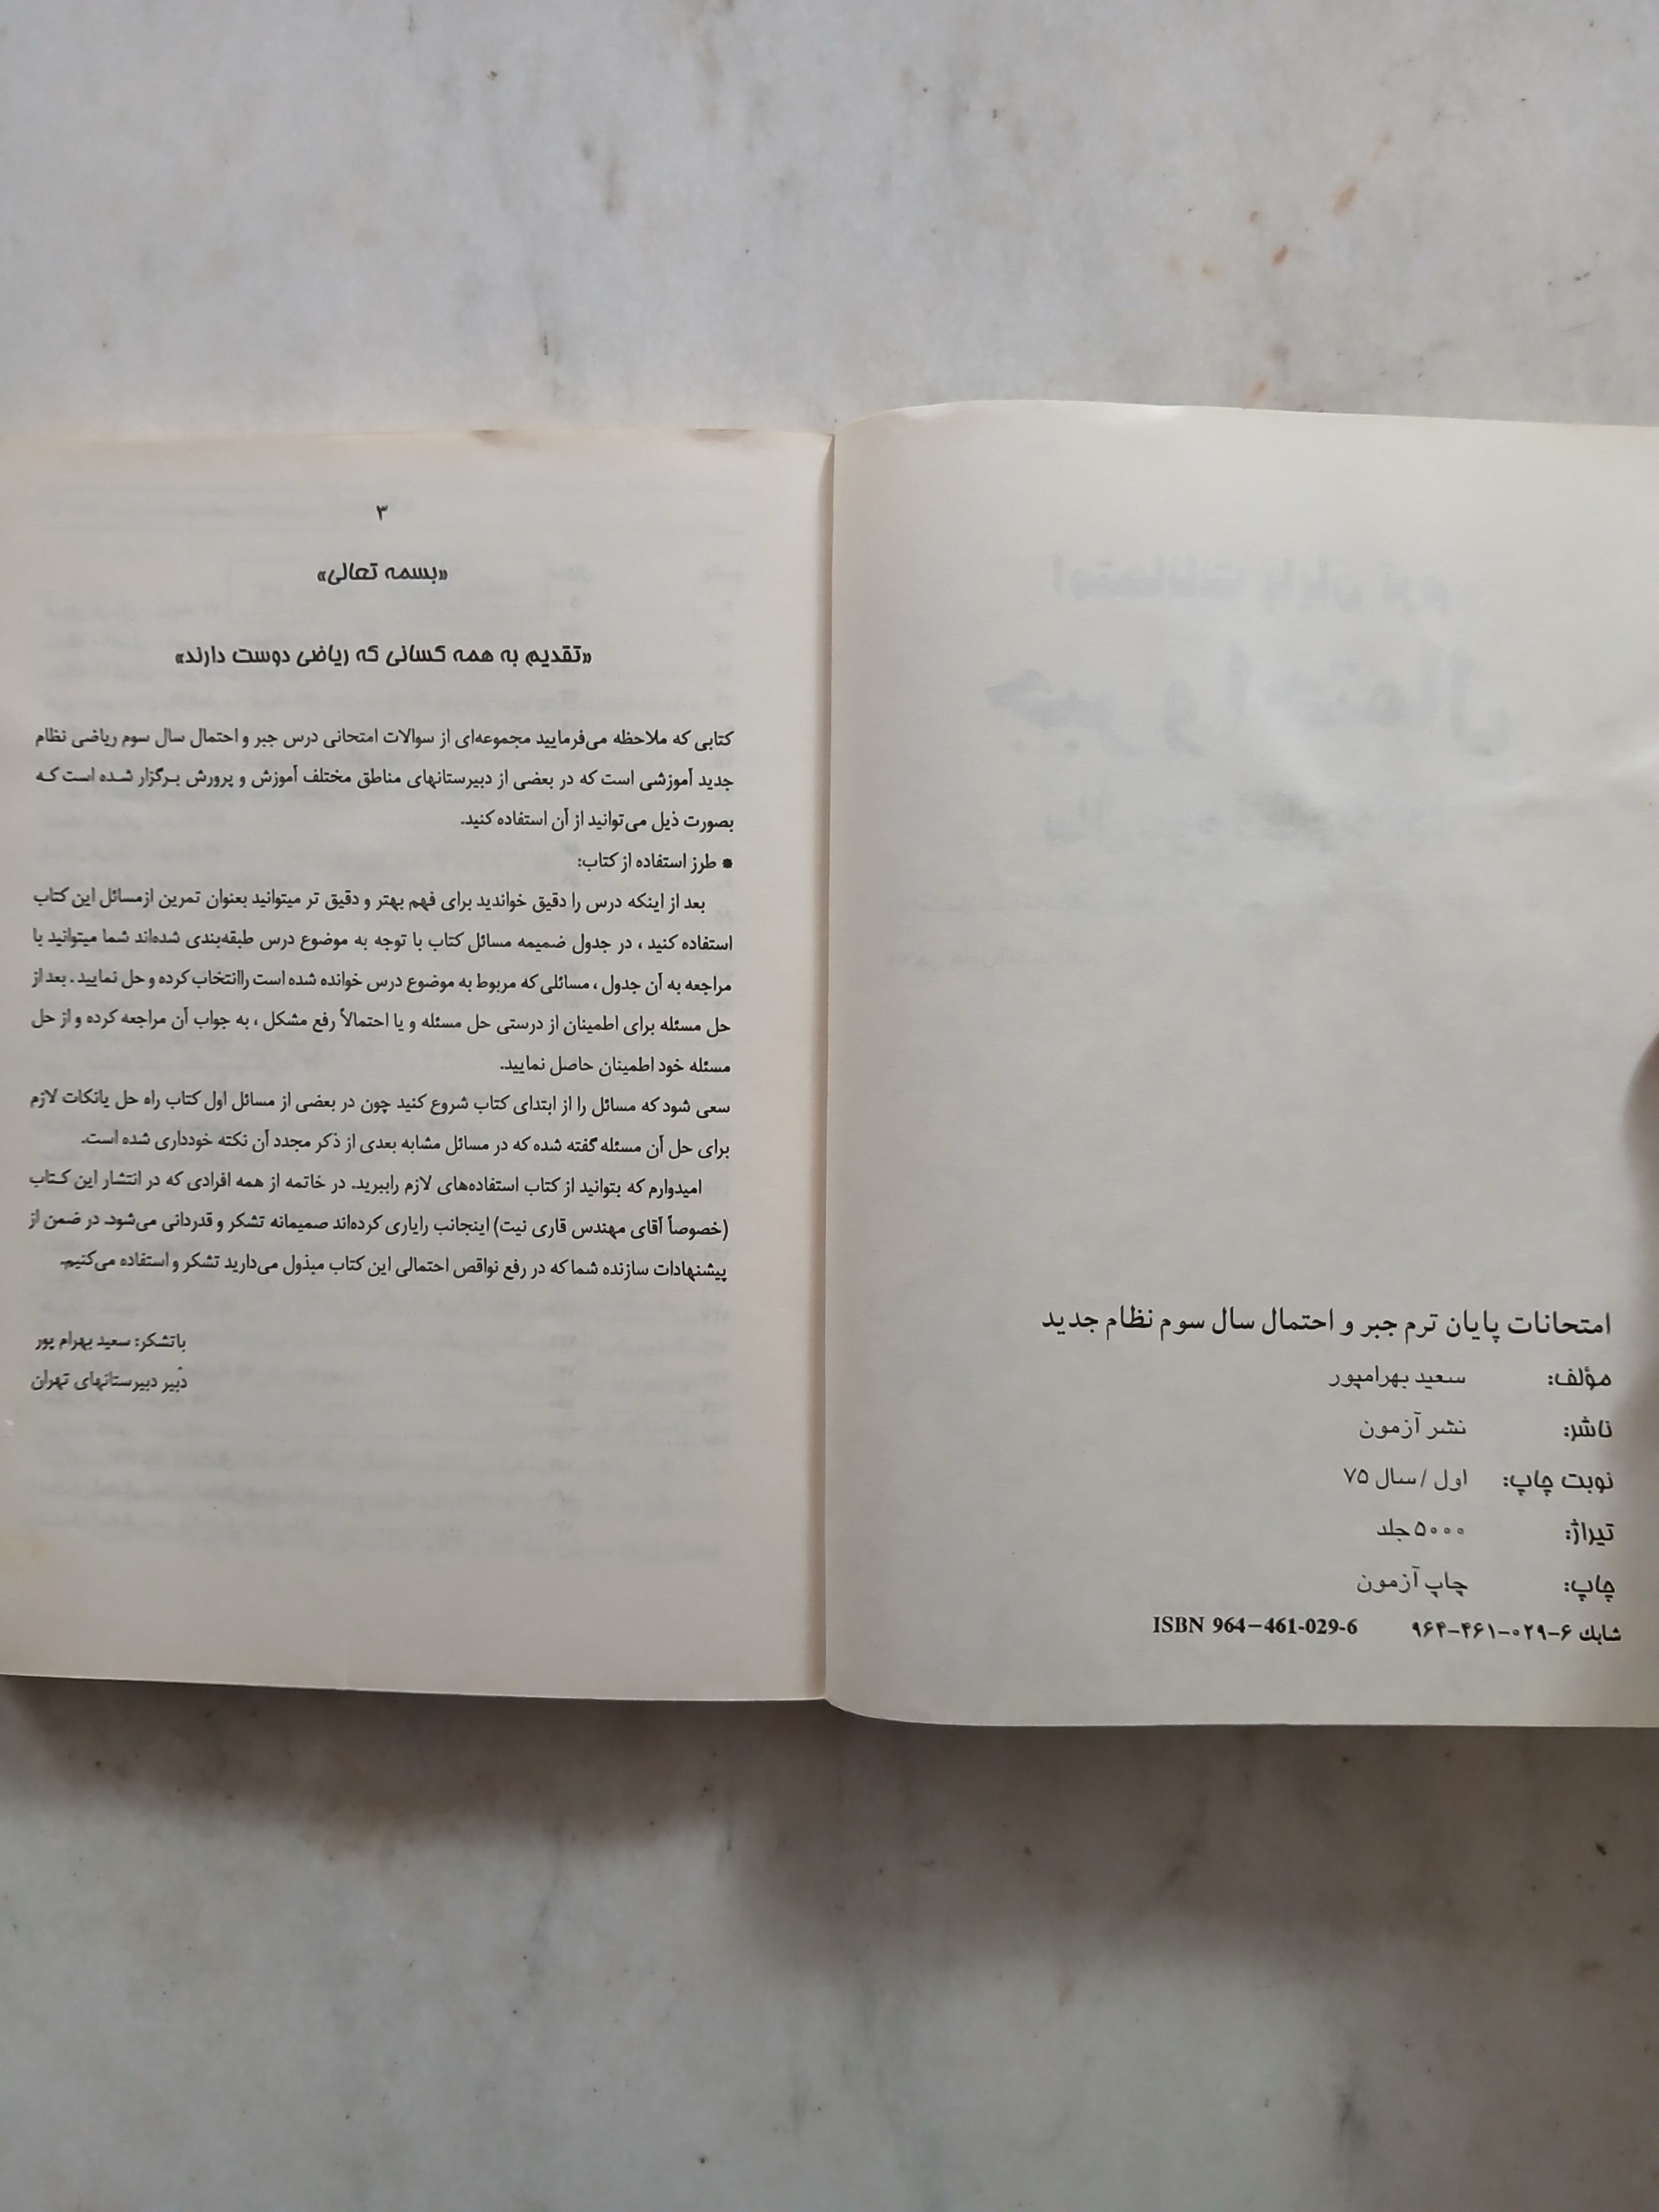 امتحانات پایان ترم جبر و احتمال سال سوم نظام جدید
مؤلف: سعید بهرامپور
ناشر: نشر آزمون
نوبت چاپ: اول / سال ۷۵
تیراژ: ۵۰۰۰ جلد
چاپ: چاپ آزمون
شابک ۶-۰۲۹-۴۶۱-۹۶۴ ISBN 964-461-029-6
۳
«بسمه تعالی»
«تقدیم به همه کسانی که ریاضی دوست دارند»
کتابی که ملاحظه می‌فرمایید مجموعه‌ای از سوالات امتحانی درس جبر و احتمال سال سوم ریاضی نظام
جدید آموزشی است که در بعضی از دبیرستانهای مناطق مختلف آموزش و پرورش برگزار شده است که
بصورت ذیل می‌توانید از آن استفاده کنید.
* طرز استفاده از کتاب:
بعد از اینکه درس را دقیق خواندید برای فهم بهتر و دقیق تر میتوانید بعنوان تمرین ازمسائل این کتاب
استفاده کنید ، در جدول ضمیمه مسائل کتاب با توجه به موضوع درس طبقه‌بندی شده‌اند شما میتوانید با
مراجعه به آن جدول ، مسائلی که مربوط به موضوع درس خوانده شده است راانتخاب کرده و حل نمایید . بعد از
حل مسئله برای اطمینان از درستی حل مسئله و یا احتمالاً رفع مشکل ، به جواب آن مراجعه کرده و از حل
مسئله خود اطمینان حاصل نمایید.
سعی شود که مسائل را از ابتدای کتاب شروع کنید چون در بعضی از مسائل اول کتاب راه حل یانکات لازم
برای حل آن مسئله گفته شده که در مسائل مشابه بعدی از ذکر مجدد آن نکته خودداری شده است.
امیدوارم که بتوانید از کتاب استفاده‌های لازم راببرید. در خاتمه از همه افرادی که در انتشار این کتاب
(خصوصاً آقای مهندس قاری نیت) اینجانب رایاری کرده‌اند صمیمانه تشکر و قدردانی می‌شود. در ضمن از
پیشنهادات سازنده شما که در رفع نواقص احتمالی این کتاب مبذول می‌دارید تشکر و استفاده می‌کنیم.
باتشکر: سعید بهرام پور
دبیر دبیرستانهای تهران